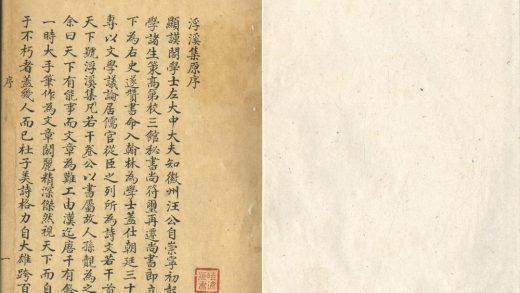 浮溪集原序
顯謨閣學士左大中大夫知徽州汪公自崇寧初起
學諸生策高第校三館秘書尚符璽再遷尚書即立
下為右史遂贊書命入翰林為學士蓋仕朝廷三十
專以文學議論居儒官從臣之列所為詩文若干首
天下號浮溪集凡若干卷公以書屬故人孫覿為之
余曰天下有能事而文章為難工由漢迄唐千有餘
一時大手筆作為文章閎麗精深傑然視天下而自
于不朽者蓋幾人而已杜子美詩格力自大雄跨百
序
一